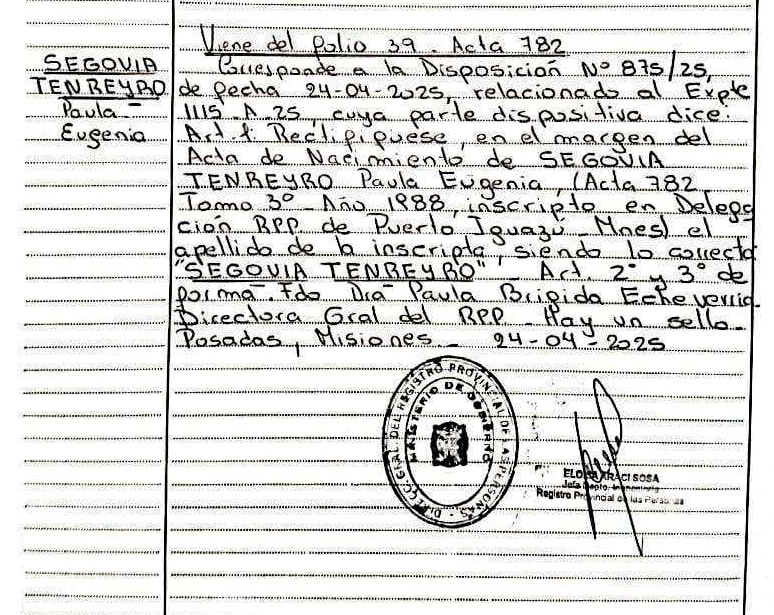 SEGOVIA
TENREYRO
Paula
Eugenia
Viene del folio 39. Acta 782
Corresponde a la Disposición Nº 875/25,
de fecha 24-04-2025, relacionado al Expte
1115-A-25, cuya parte dispositiva dice:
Art. 1: Rectifiquese, en el margen del
Acta de Nacimiento de SEGOVIA
TENREYRO Paula Eugenia, (Acta 782
Tomo 3º - Año 1988, inscripto en Delega
ción RPP. de Puerto Iguazú - Mnes) el
apellido de la inscripta, siendo lo correcto
"SEGOVIA TENREYRO" - Art. 2º y 3º de
forma. Fdo Dra Paula Brigida Echeverria
Directora Gral del RPP - Hay un sello -
Posadas, Misiones - 24-04-2025
DIRECC. GRAL. DEL REGISTRO PROVINCIAL DE LAS PERSONAS
MINISTERIO DE GOBIERNO
ELOISA ARACI SOSA
Jefa Depto.
Registro Provincial de las Personas